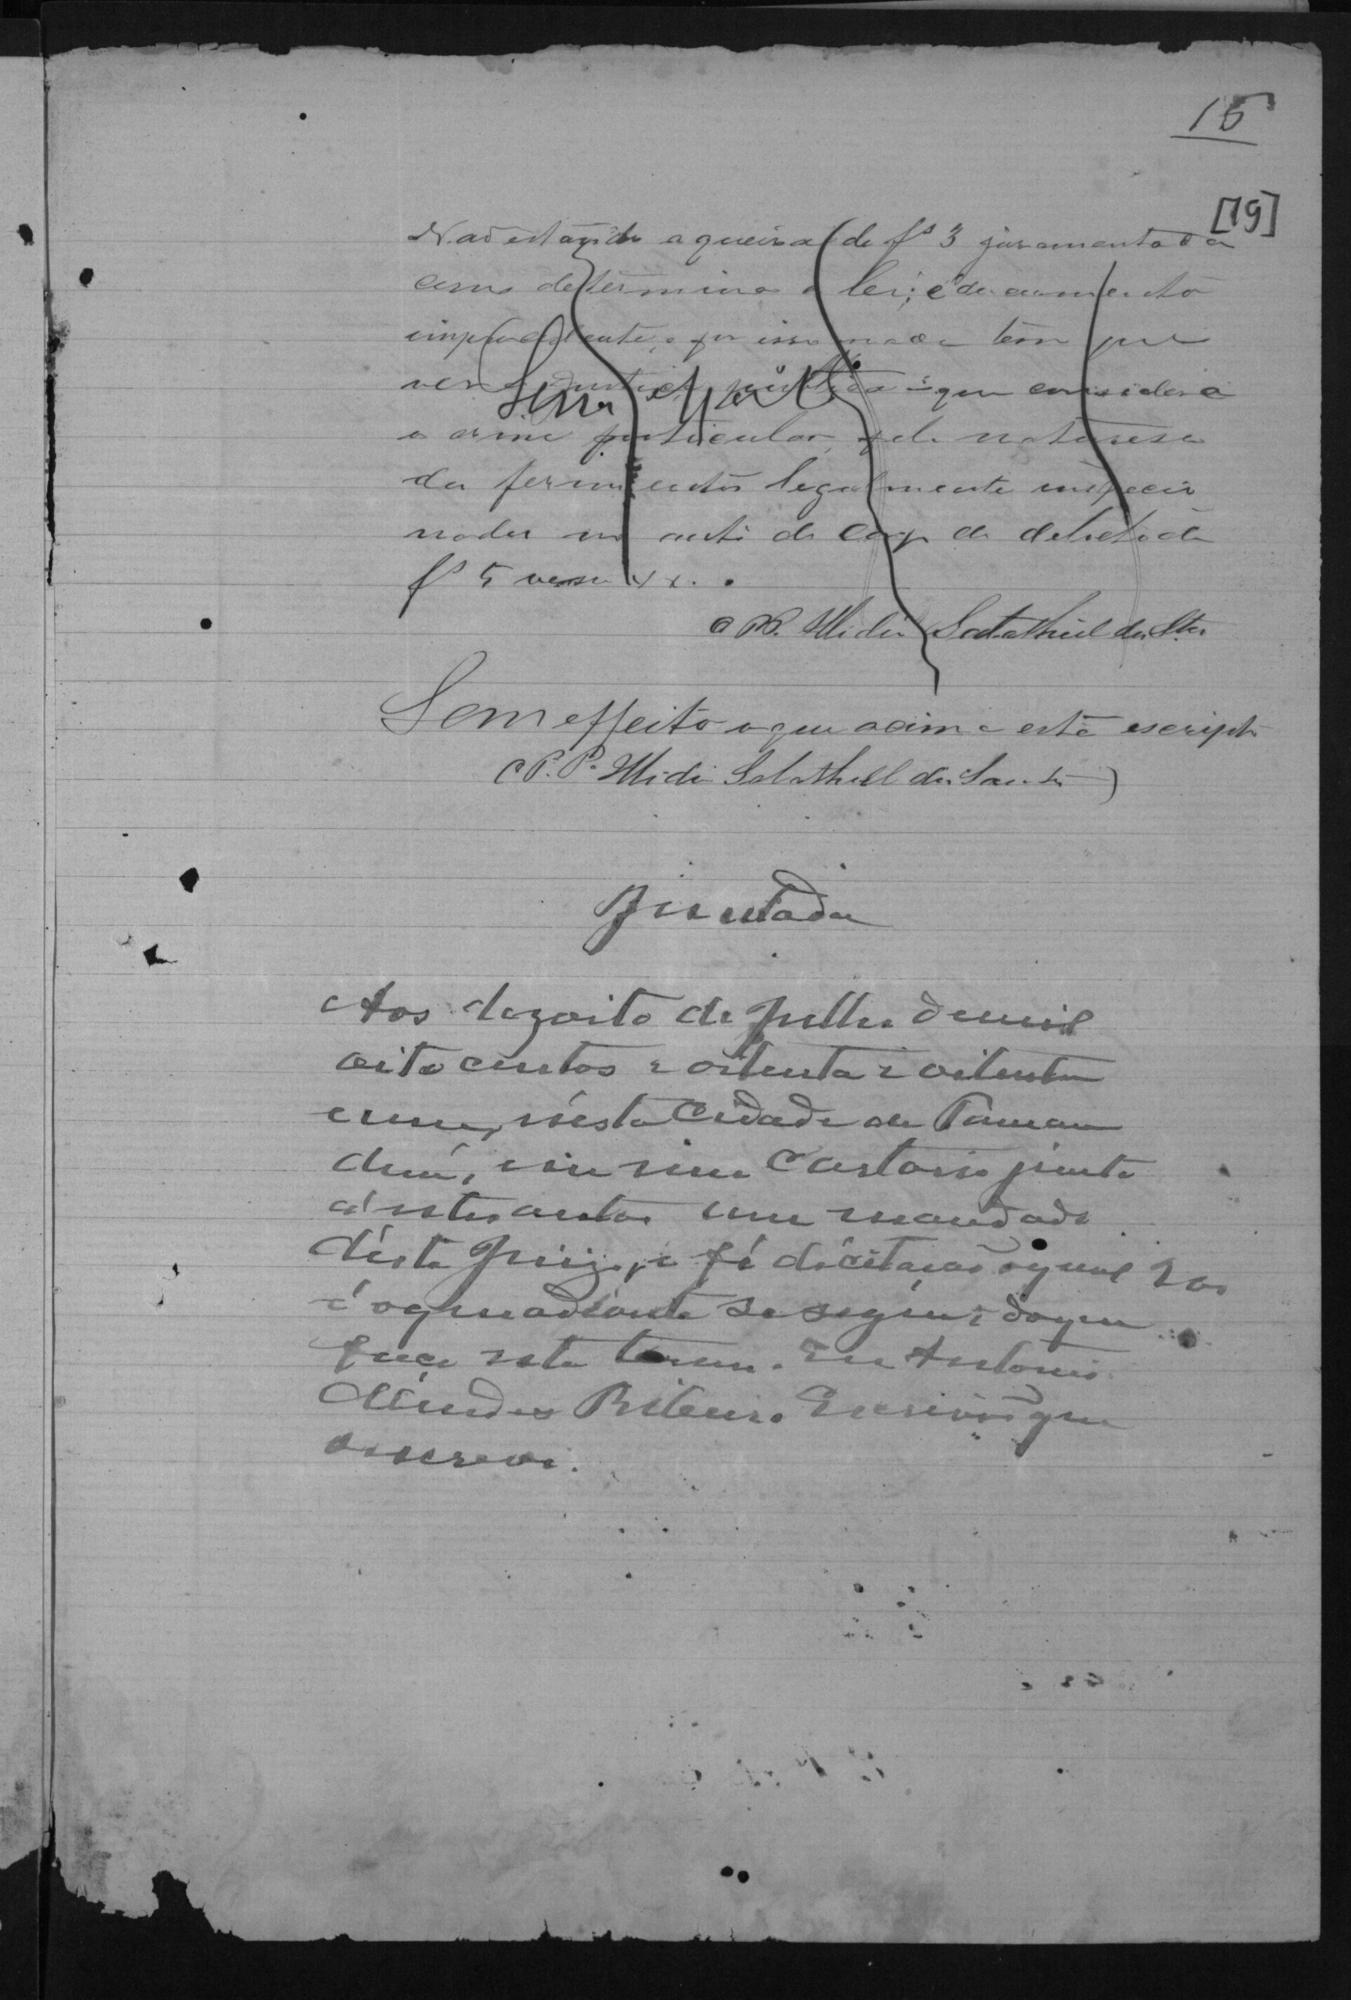 15
[19]
Não estando a queixa de fs 3 juramentada
como determina a lei, é documento
improcedente, e por isso nada tem que
ver a justiça publica que considera
Sem effeito
o crime particular, pela naturesa
dos ferimentos legalmente inspecio
nados no auto de corpo de delicto de
fs 5 verso
O P. P. Salathiel dos Stos
Sem effeito o que acima está escripto
O P. P. Salathiel dos Santos
Juntada
Aos dezoito de Julho de mil
oito centos e oitenta e oitenta
e um, n'esta Cidade de Taman
duá, em meu Cartorio junto
a estes autos um mandado
d'este Juizo, e fé de citação o qual
é o que adiante se segue; do que
faço este termo. Eu Antonio
Mendes Ribeiro Escrivão que
o escrevi.